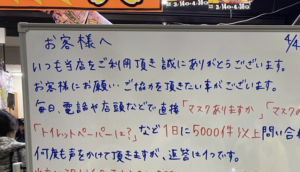 お客様へ
4/4
いつも当店をご利用頂き誠にありがとうございます。
お客様にお願い・ご協力を頂きたい事がございます。
毎日、電話や店頭などで直接「マスクありますか」「マスク
「トイレットペーパーは?」など1日に5000件以上問い合
何度も声をかけて頂きますが、返答は1つです。